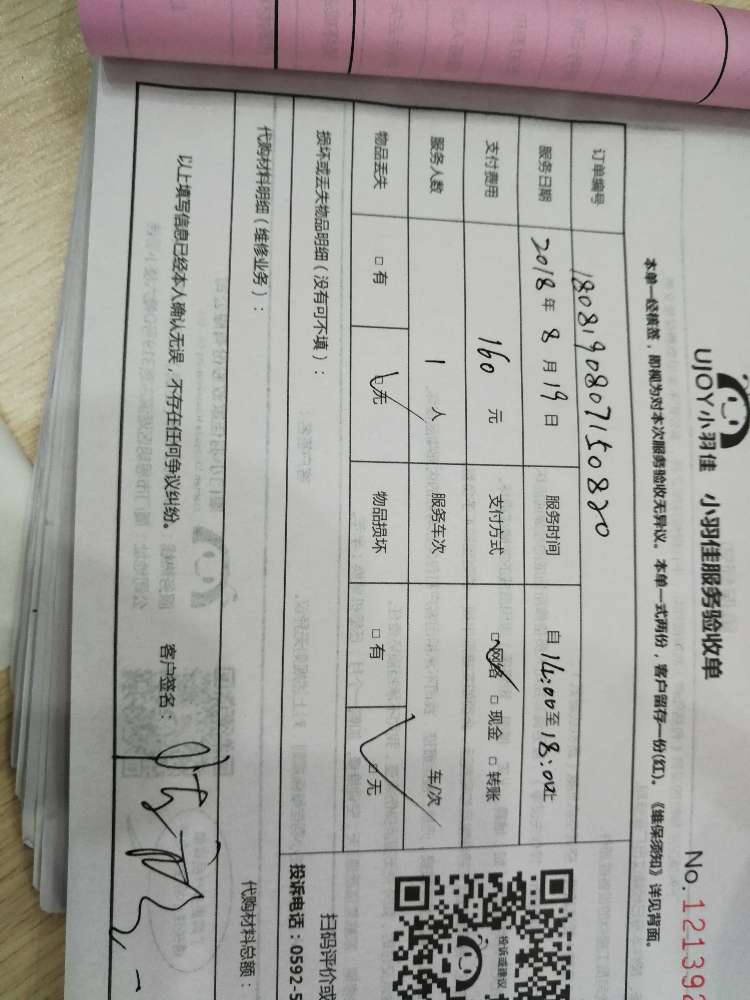 UJOY小羽佳 小羽佳服务验收单
No.121392
本单一经核签，即视为对本次服务验收无异议。本单一式两份，客户留存一份(红)。《维保须知》详见背面。
订单编号 1808190807150820
服务日期 2018年8月19日 服务时间 自14:00至18:00止
支付费用 160元 支付方式 □网络 □现金 □转账
服务人数 1人 服务车次 车/次
物品丢失 □有 □无 物品损坏 □有 □无
损坏或丢失物品明细（没有可不填）：
代购材料明细（维修业务）：
代购材料总额：
以上填写信息已经本人确认无误，不存在任何争议纠纷。 客户签名：
投诉或建议
扫码评价或
投诉电话：0592-5